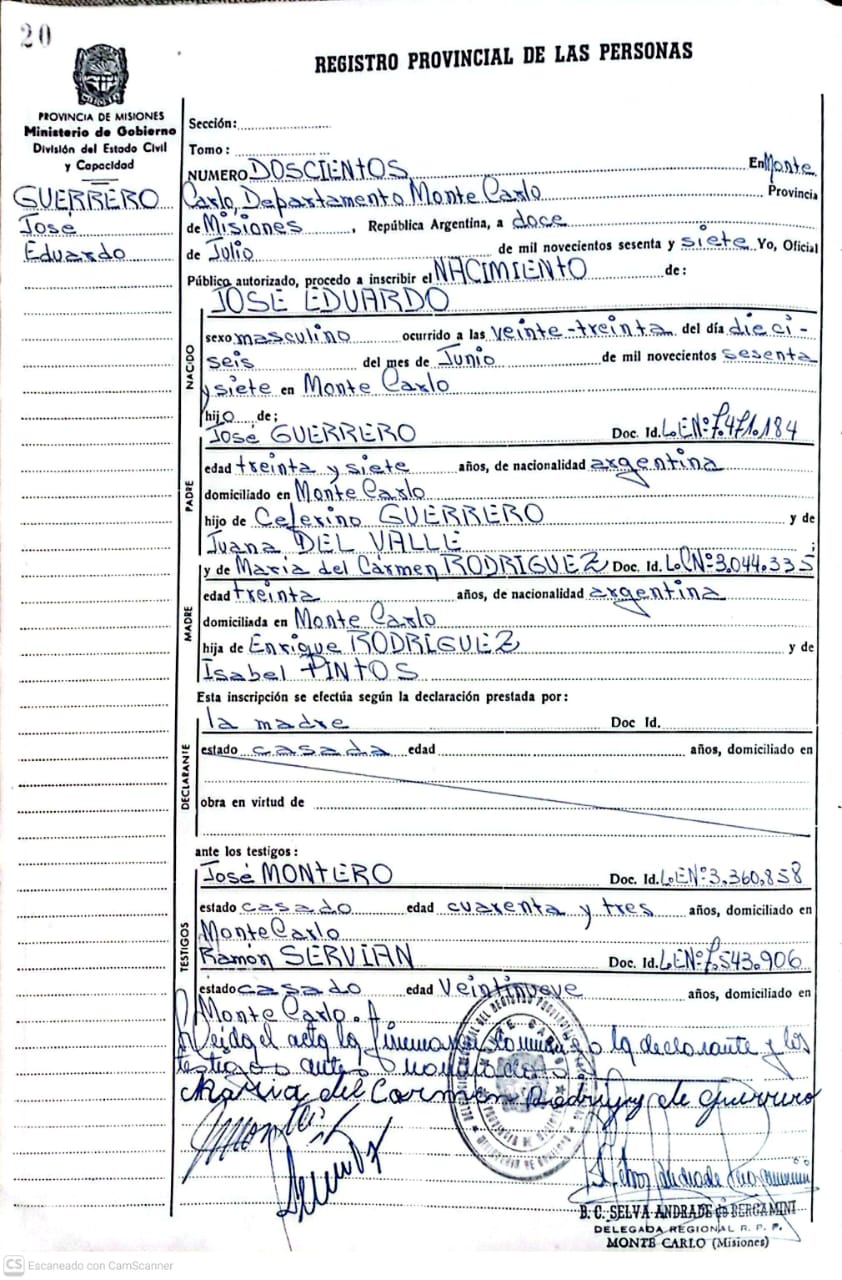 20
REGISTRO PROVINCIAL DE LAS PERSONAS
PROVINCIA DE MISIONES
Ministerio de Gobierno
División del Estado Civil
y Capacidad
GUERRERO
José
Eduardo
Sección:
Tomo:
NUMERO DOSCIENTOS En Monte
Carlo, Departamento Monte Carlo Provincia
de Misiones, República Argentina, a doce
de Julio de mil novecientos sesenta y siete Yo, Oficial
Público autorizado, procedo a inscribir el NACIMIENTO de:
JOSÉ EDUARDO
NACIDO
sexo masculino ocurrido a las veinte-treinta del día dieci-
seis del mes de Junio de mil novecientos sesenta
y siete en Monte Carlo
hijo de;
José GUERRERO Doc. Id. L.E.Nº 7.471.184
PADRE
edad treinta y siete años, de nacionalidad argentina
domiciliado en Monte Carlo
hijo de Ceferino GUERRERO y de
Juana DEL VALLE ;
y de María del Cármen RODRIGUEZ Doc. Id. L.C.Nº 3.044.335
MADRE
edad treinta años, de nacionalidad argentina
domiciliada en Monte Carlo
hija de Enrique RODRIGUEZ y de
Isabel PINTOS
Esta inscripción se efectúa según la declaración prestada por:
DECLARANTE
la madre Doc Id.
estado casada edad años, domiciliado en
obra en virtud de
ante los testigos:
TESTIGOS
José MONTERO Doc. Id. L.E.Nº 3.360.858
estado casado edad cuarenta y tres años, domiciliado en
Monte Carlo
Ramón SERVIAN Doc. Id. L.E.Nº 7.543.906
estado casado edad Veintinueve años, domiciliado en
Monte Carlo.
Leída el acta la firman conmigo la declarante y los
testigos antes nombrados
María del Carmen Rodriguez de Guerrero
MONTE CARLO
PROVINCIA DE MISIONES
B. C. SELVA ANDRADE de BERGAMINI
DELEGADA REGIONAL R. P. P.
MONTE CARLO (Misiones)
CS Escaneado con CamScanner